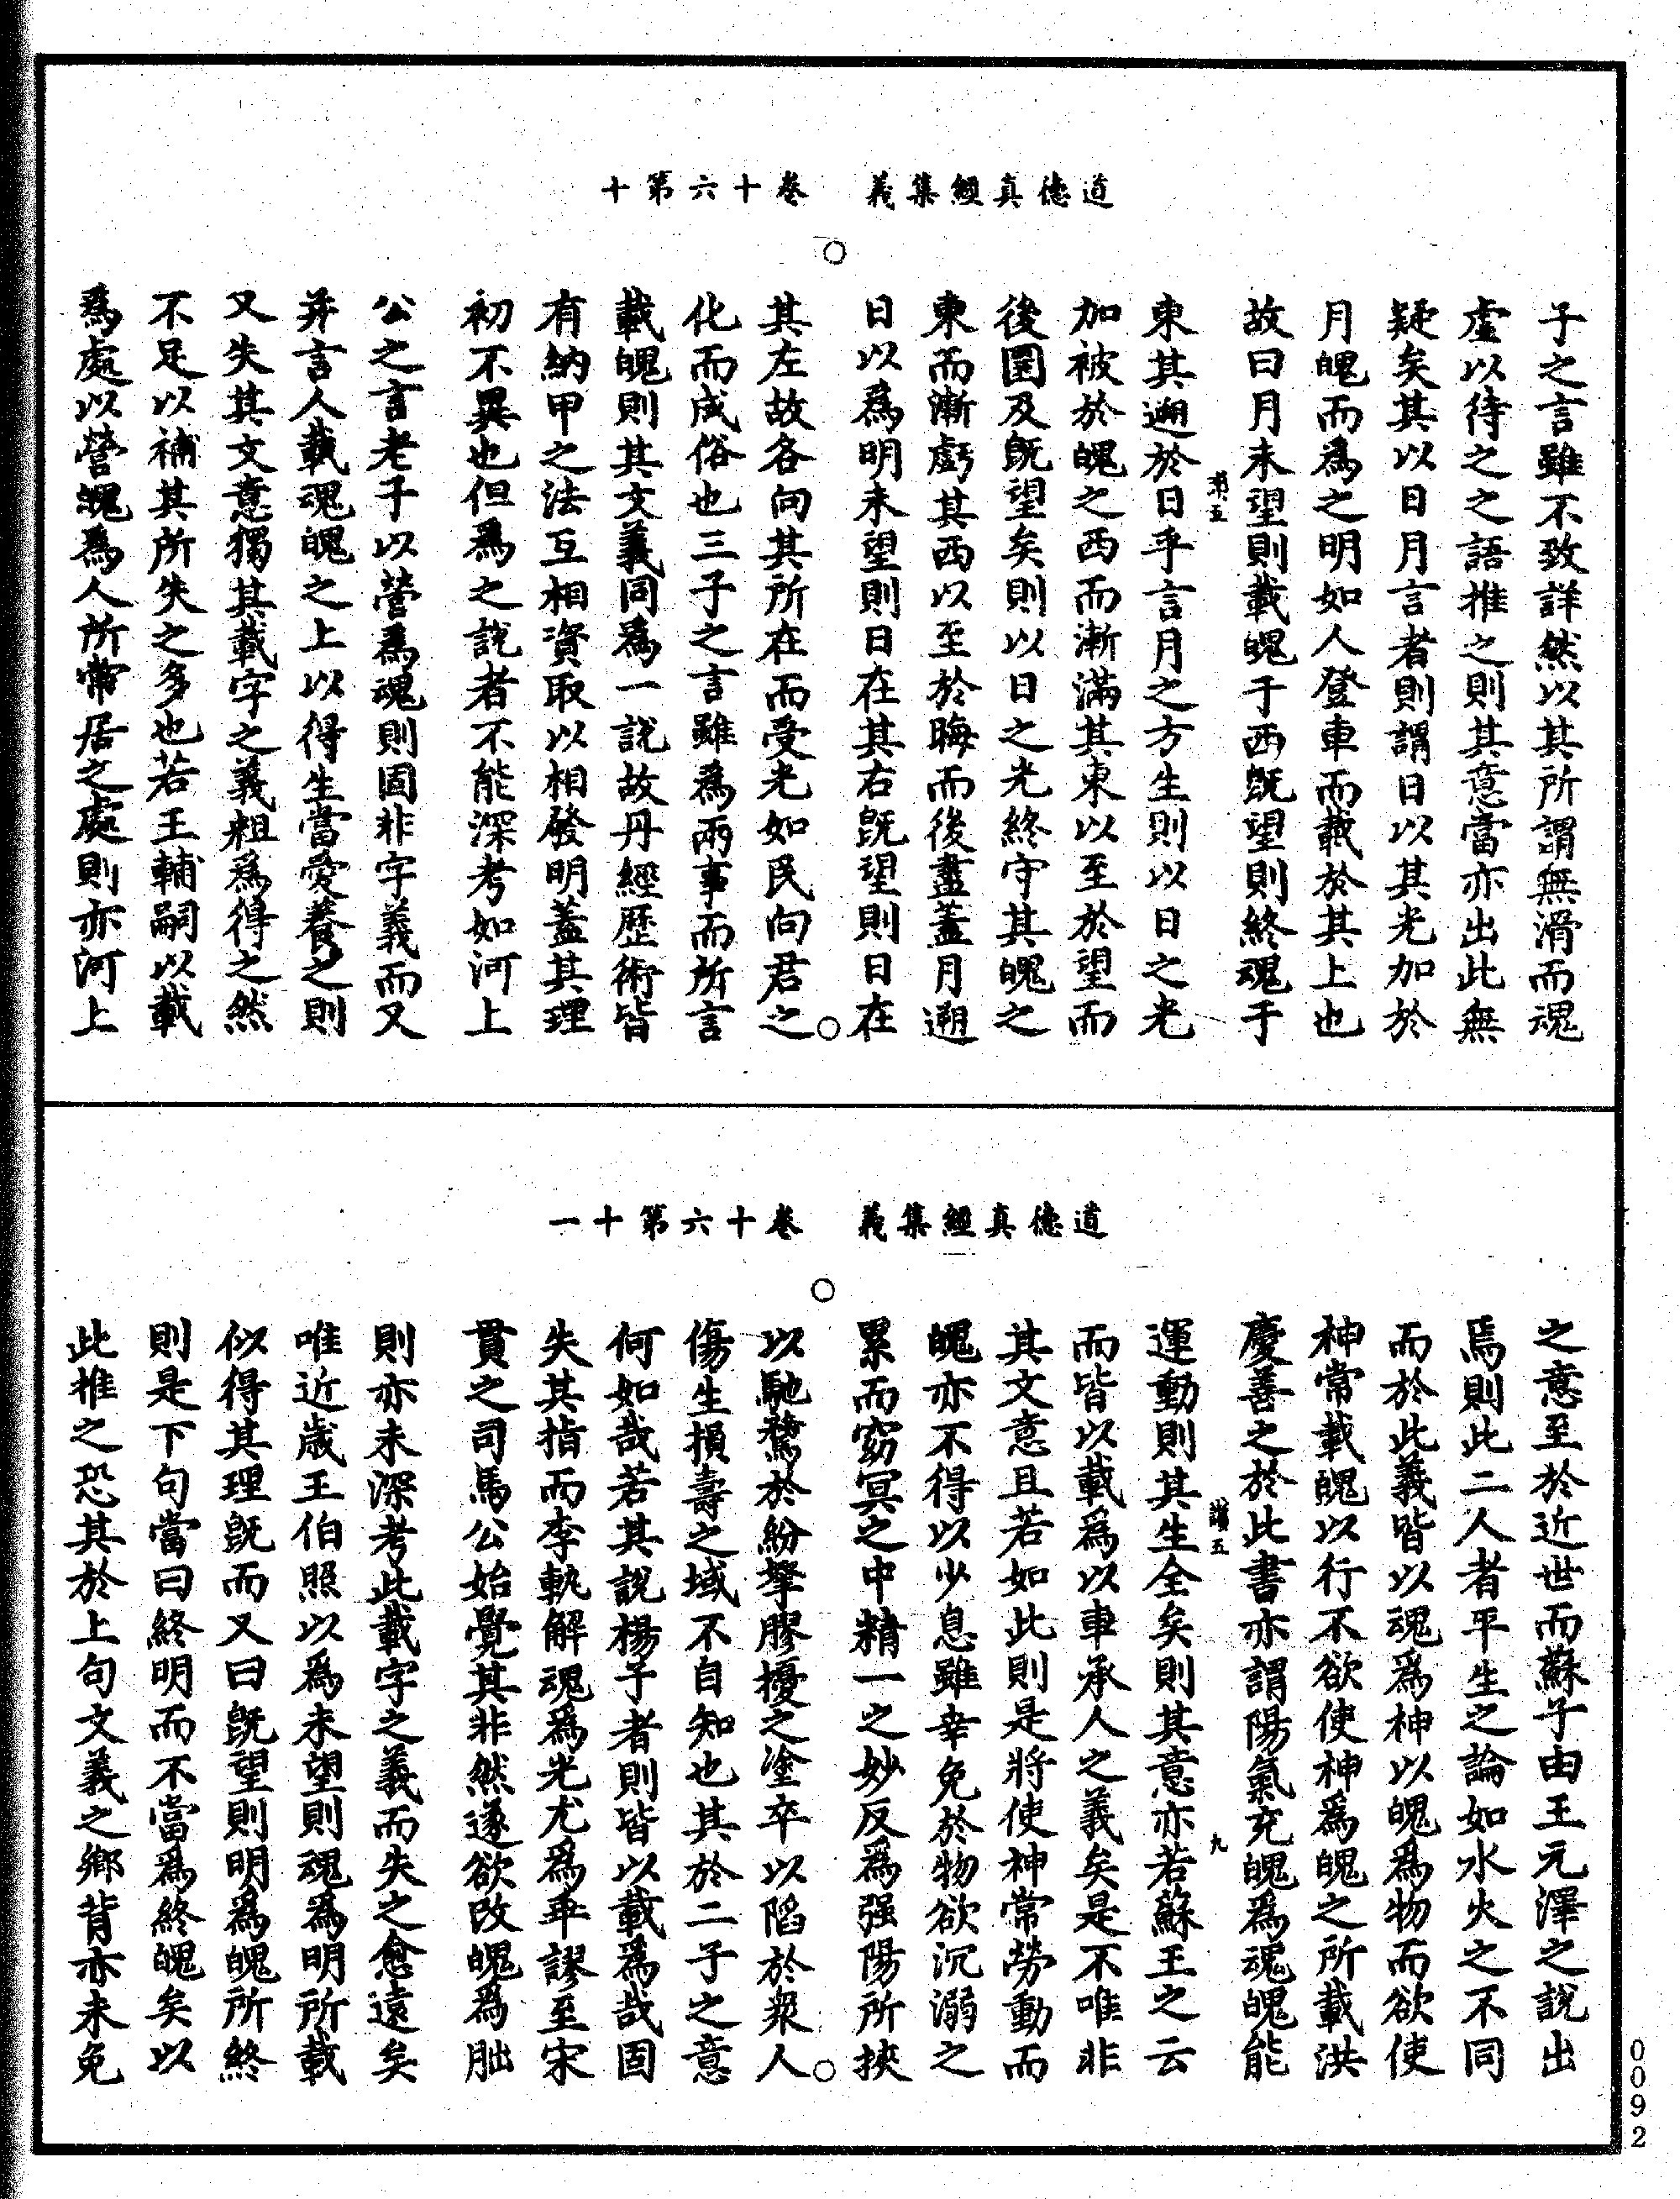 道德真經集義　卷十六第十
子之言雖不致詳然以其所謂無滑而魂
虛以待之之語推之則其意當亦出此無
疑矣其以日月言者則謂日以其光加於
月魄而為之明如人登車而載於其上也
故曰月未望則載魄于西旣望則終魂于
東其遡於日乎言月之方生則以日之光
加被於魄之西而漸滿其東以至於望而
後圓及旣望矣則以日之光終守其魄之
東而漸虧其西以至於晦而後盡蓋月遡
日以為明未望則日在其右旣望則日在
其左故各向其所在而受光如民向君之
化而成俗也三子之言雖為兩事而所言
載魄則其文義同為一說故丹經歷術皆
有納甲之法互相資取以相發明蓋其理
初不異也但為之說者不能深考如河上
公之言老子以營為魂則固非字義而又
并言人載魂魄之上以得生當愛養之則
又失其文意獨其載字之義粗為得之然
不足以補其所失之多也若王輔嗣以載
為處以營魄為人所常居之處則亦河上
道德真經集義　卷十六第十一
之意至於近世而蘇子由王元澤之說出
焉則此二人者平生之論如水火之不同
而於此義皆以魂為神以魄為物而欲使
神常載魄以行不欲使神為魄之所載洪
慶善之於此書亦謂陽氣充魄為魂魄能
運動則其生全矣則其意亦若蘇王之云
而皆以載為以車承人之義矣是不唯非
其文意且若如此則是將使神常勞動而
魄亦不得以少息雖幸免於物欲沉溺之
累而窈冥之中精一之妙反為强陽所挾
以馳騖於紛拏膠擾之塗卒以陷於衆人
傷生損壽之域不自知也其於二子之意
何如哉若其說楊子者則皆以載為哉固
失其指而李軌解魂為光尤為乖謬至宋
貫之司馬公始覺其非然遂欲改魄為朏
則亦未深考此載字之義而失之愈遠矣
唯近歲王伯照以為未望則魂為明所載
似得其理旣而又曰旣望則明為魄所終
則是下句當曰終明而不當為終魄矣以
此推之恐其於上句文義之鄉背亦未免
0092